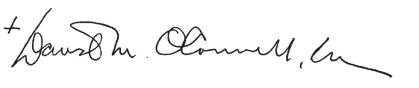 + David M. O'Connell, CM